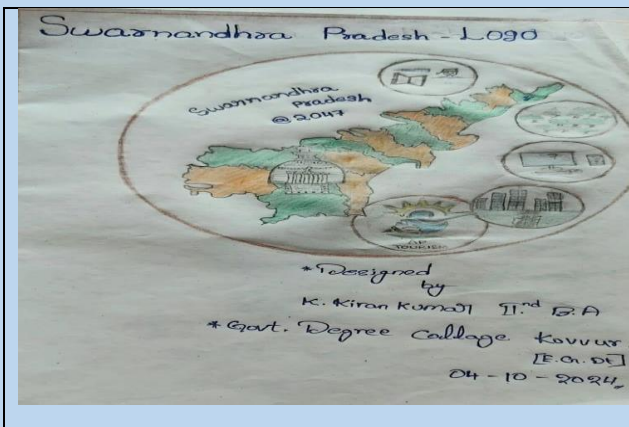 Swarnandhra Pradesh - Logo
Swarnandhra
Pradesh
@ 2047
AP
TOURISM
*Designed
by
K. Kiran Kumar II.nd B.A
*Govt. Degree Callage Kovvur
[E.G. Dt]
04-10-2024.